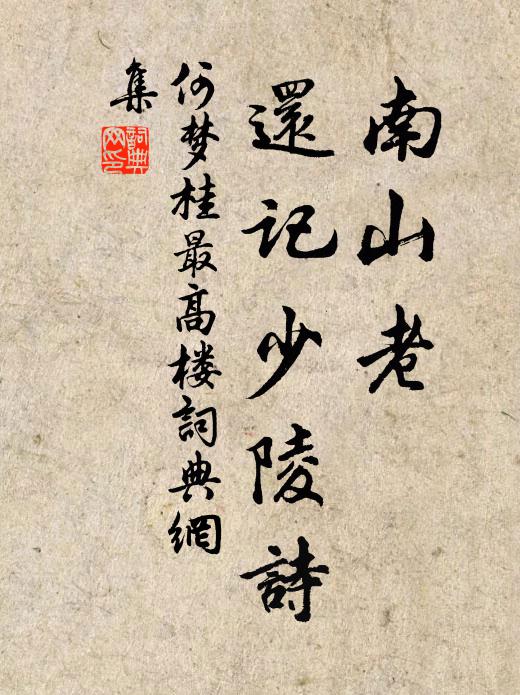 南山老
還記少陵詩
何梦桂最高楼詞典網
集
詞典
网印